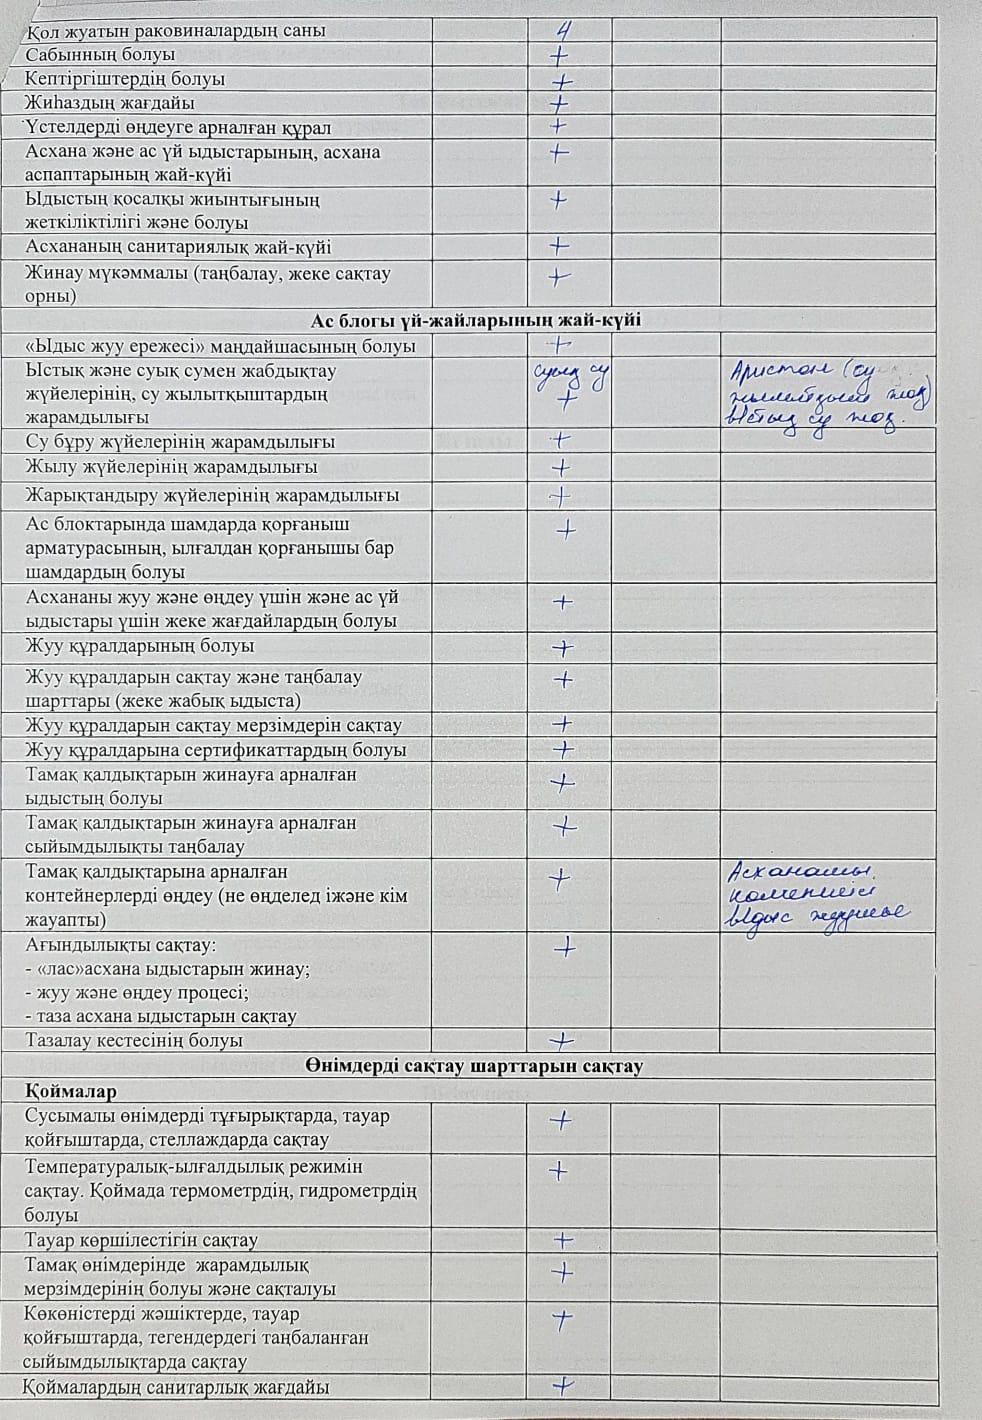 Қол жуатын раковиналардың саны 4
Сабынның болуы +
Кептіргіштердің болуы +
Жиһаздың жағдайы +
Үстелдерді өңдеуге арналған құрал +
Асхана және ас үй ыдыстарының, асхана +
аспаптарының жай-күйі
Ыдыстың қосалқы жиынтығының +
жеткіліктілігі және болуы
Асхананың санитариялық жай-күйі +
Жинау мүкәммалы (таңбалау, жеке сақтау +
орны)
Ас блогы үй-жайларының жай-күйі
«Ыдыс жуу ережесі» маңдайшасының болуы +
Ыстық және суық сумен жабдықтау суық су Аристон (су
жүйелерінің, су жылытқыштардың + жоқ)
жарамдылығы Ыстық су жоқ.
Су бұру жүйелерінің жарамдылығы +
Жылу жүйелерінің жарамдылығы +
Жарықтандыру жүйелерінің жарамдылығы +
Ас блоктарында шамдарда қорғаныш +
арматурасының, ылғалдан қорғанышы бар
шамдардың болуы
Асхананы жуу және өңдеу үшін және ас үй +
ыдыстары үшін жеке жағдайлардың болуы
Жуу құралдарының болуы +
Жуу құралдарын сақтау және таңбалау +
шарттары (жеке жабық ыдыста)
Жуу құралдарын сақтау мерзімдерін сақтау +
Жуу құралдарына сертификаттардың болуы +
Тамақ қалдықтарын жинауға арналған +
ыдыстың болуы
Тамақ қалдықтарын жинауға арналған +
сыйымдылықты таңбалау
Тамақ қалдықтарына арналған + Асханашы
контейнерлерді өңдеу (не өңделед іжәне кім көмекшісі
жауапты) Ыдыс жуушы
Ағындылықты сақтау: +
- «лас»асхана ыдыстарын жинау;
- жуу және өңдеу процесі;
- таза асхана ыдыстарын сақтау
Тазалау кестесінің болуы +
Өнімдерді сақтау шарттарын сақтау
Қоймалар
Сусымалы өнімдерді тұғырықтарда, тауар +
қойғыштарда, стеллаждарда сақтау
Температуралық-ылғалдылық режимін +
сақтау. Қоймада термометрдің, гидрометрдің
болуы
Тауар көршілестігін сақтау +
Тамақ өнімдерінде жарамдылық +
мерзімдерінің болуы және сақталуы
Көкөністерді жәшіктерде, тауар +
қойғыштарда, тегендердегі таңбаланған
сыйымдылықтарда сақтау
Қоймалардың санитарлық жағдайы +